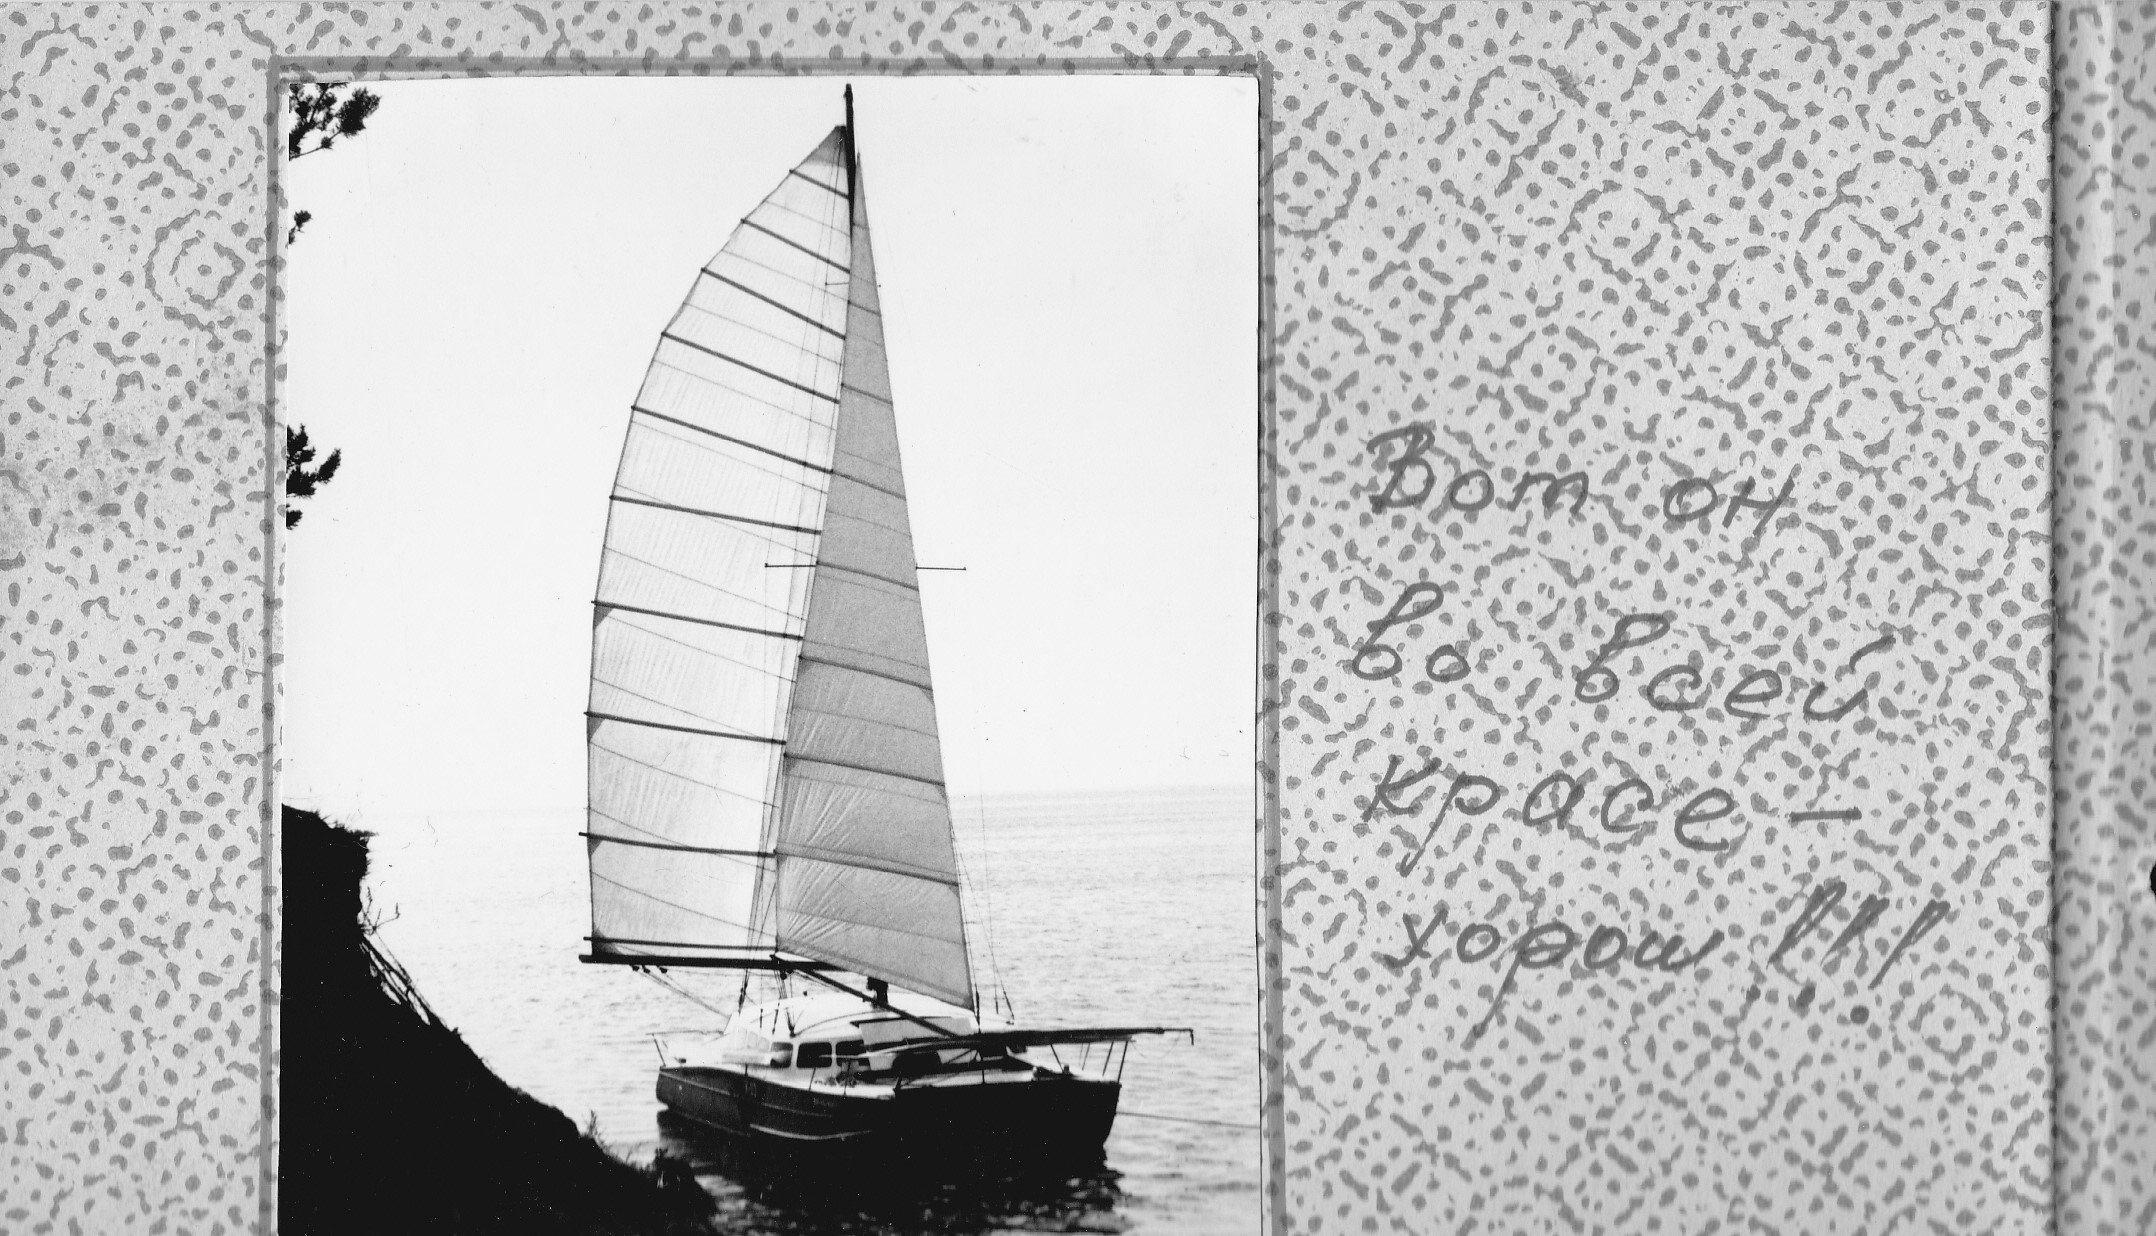 Вот он
во всей
красе —
хорош!!!